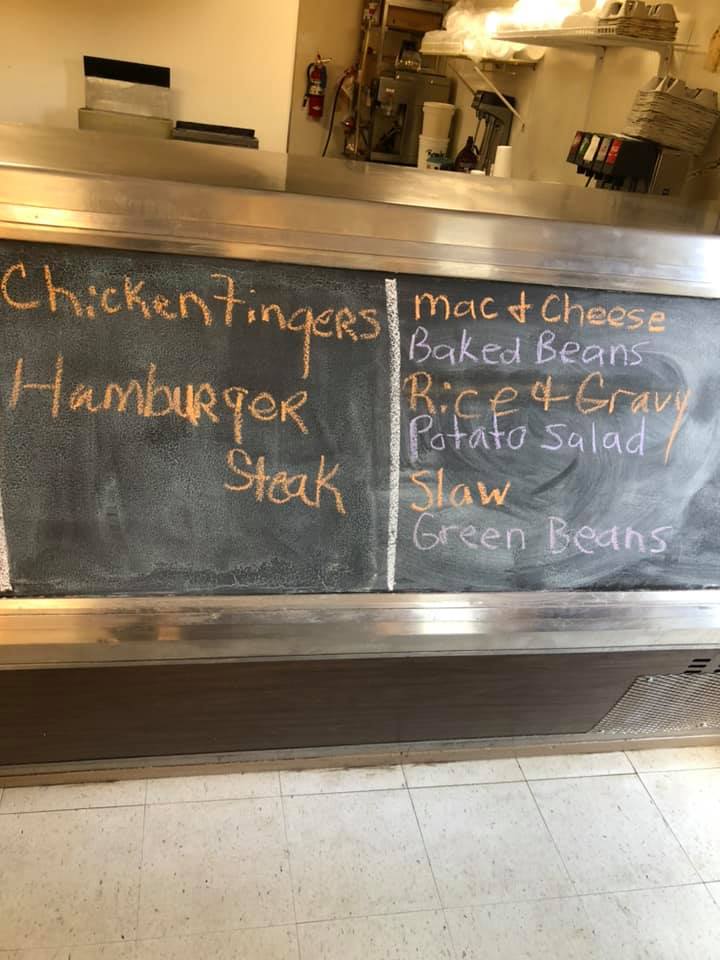 Chicken Fingers
Hamburger
Steak
mac & Cheese
Baked Beans
Rice & Gravy
Potato Salad
Slaw
Green Beans